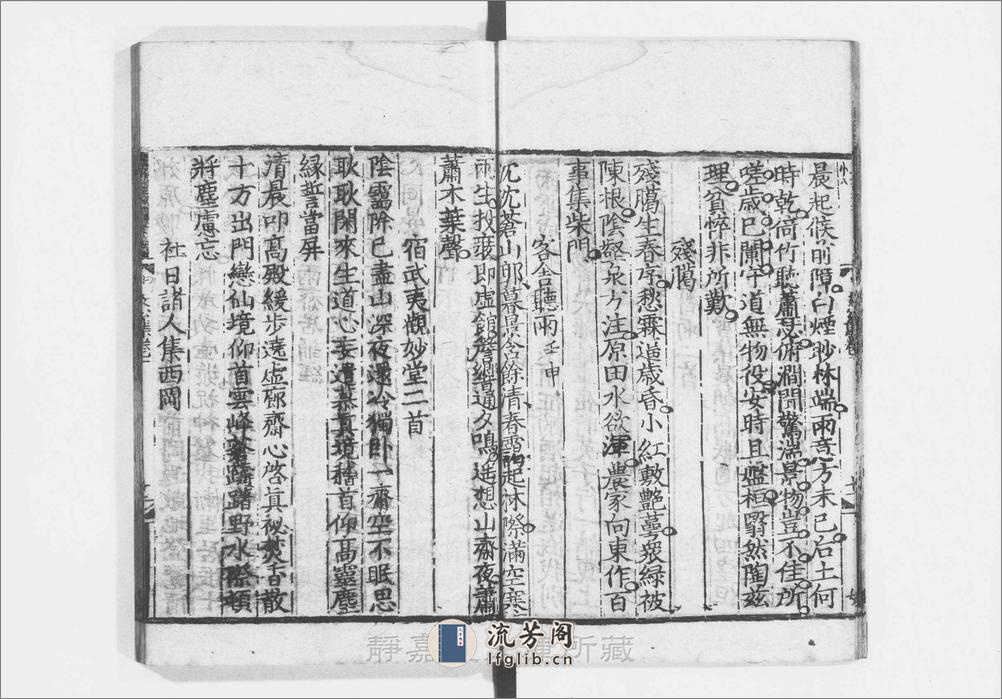 晨起候前障白煙眇林端雨意方未已后土何
時乾倚竹聽蕭瑟俯澗聞驚湍景物豈不佳所
嗟歲已闌守道無物役安時且盤桓翳然陶茲
理貧悴非所歎
殘臘
殘臘生春序愁霖逼歲昏小紅敷艷萼衆綠被
陳根陰壑泉方注原田水欲渾農家向東作百
事集柴門
客舍聽雨壬申
沈沈蒼山郭暮景含餘清春靄起林際滿空寒
雨生投裝即虛館簷響通夕鳴遥想山齋夜蕭
蕭木葉聲
宿武夷觀妙堂二首
陰靄除已盡山深夜還冷獨卧一齋空不眠思
耿耿閑來生道心妄遣慕真境稽首仰高靈塵
緣誓當屏
清晨叩高殿緩步遶虛廊齋心啓真秘焚香散
十方出門戀仙境仰首雲峰蒼躊躇野水際頓
將塵慮忘
社日諸人集西岡
静嘉堂文庫所藏
流芳阁
lfglib.cn